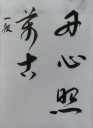 丹心照
萬古
一般